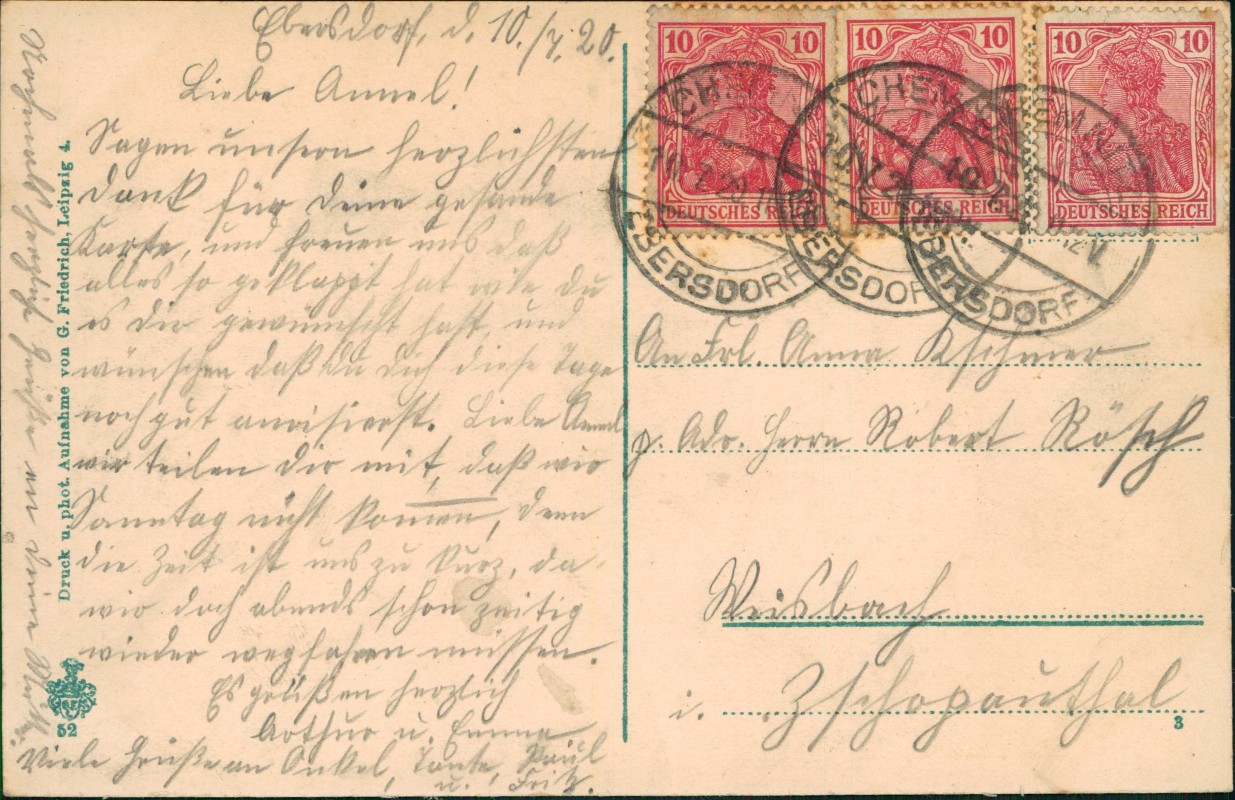 Ebersdorf, d. 10./7. 20.
Liebe Annel!
Sagen unsern herzlichsten
Dank für Deine gesande
Karte, und freuen uns daß
alles so geklappt hat wie Du
es Dir gewünscht hast, und
wünschen daß Du Dich diese Tage
noch gut amisierst. Liebe Annel
wir teilen Dir mit, daß wir
Sonntag nicht kommen, denn
die Zeit ist uns zu kurz, da
wir doch abends schon zeitig
wieder wegfahren müssen.
Es grüßen herzlich
Arthur u. Emma
Viele Grüße an Onkel, Tante, Paul
u. Fritz.
Nochmals herzliche Grüße an Deine
Druck u. phot. Aufnahme von G. Friedrich, Leipzig 4.
52
10 10
DEUTSCHES REICH
10 10
DEUTSCHES REICH
10 10
DEUTSCHES REICH
CHEMNITZ
EBERSDORF
10.7.20
CHEMNITZ
EBERSDORF
10.7.20
CHEMNITZ
EBERSDORF
10.7.20
12V.
An Frl. Anna
p. Adr. Herrn Robert Rösch
Weisbach
i. Zschopauthal
3